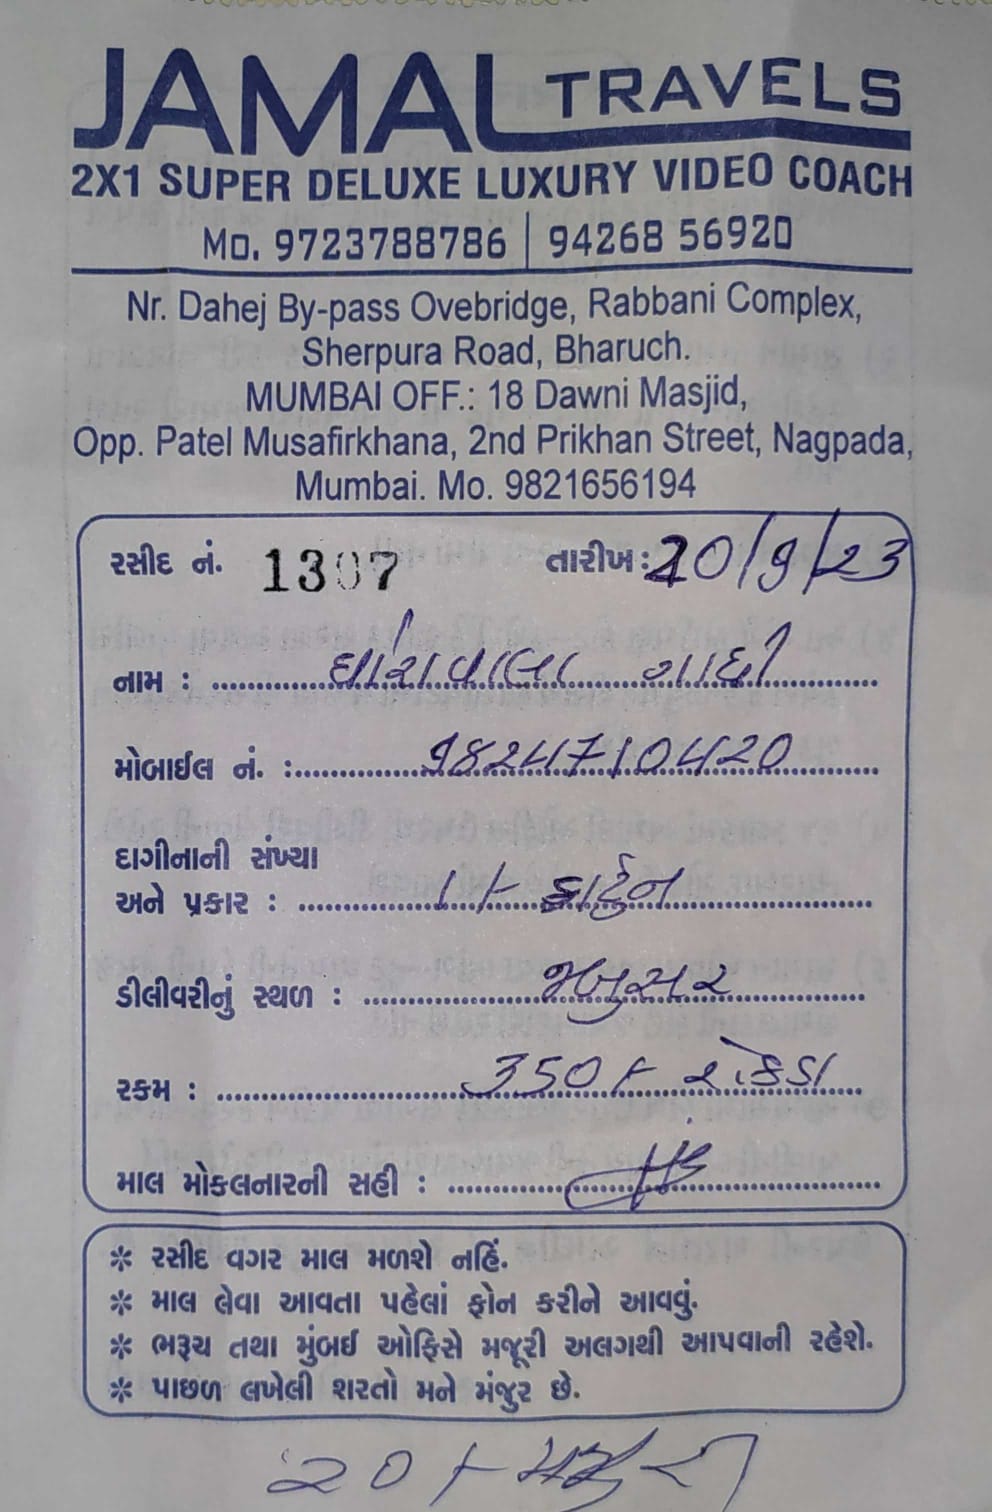 JAMAL TRAVELS
2X1 SUPER DELUXE LUXURY VIDEO COACH
Mo. 9723788786 | 94268 56920
Nr. Dahej By-pass Ovebridge, Rabbani Complex,
Sherpura Road, Bharuch.
MUMBAI OFF.: 18 Dawni Masjid,
Opp. Patel Musafirkhana, 2nd Prikhan Street, Nagpada,
Mumbai. Mo. 9821656194
રસીદ નં. 1307 તારીખ: 20/9/23
નામ :
મોબાઈલ નં. : 9824710420
દાગીનાની સંખ્યા
અને પ્રકાર :
ડીલીવરીનું સ્થળ : જંબુસર
રકમ : 350/- રોકડા
માલ મોકલનારની સહી :
* રસીદ વગર માલ મળશે નહિં.
* માલ લેવા આવતા પહેલાં ફોન કરીને આવવું.
* ભરૂચ તથા મુંબઈ ઓફિસે મજૂરી અલગથી આપવાની રહેશે.
* પાછળ લખેલી શરતો મને મંજુર છે.